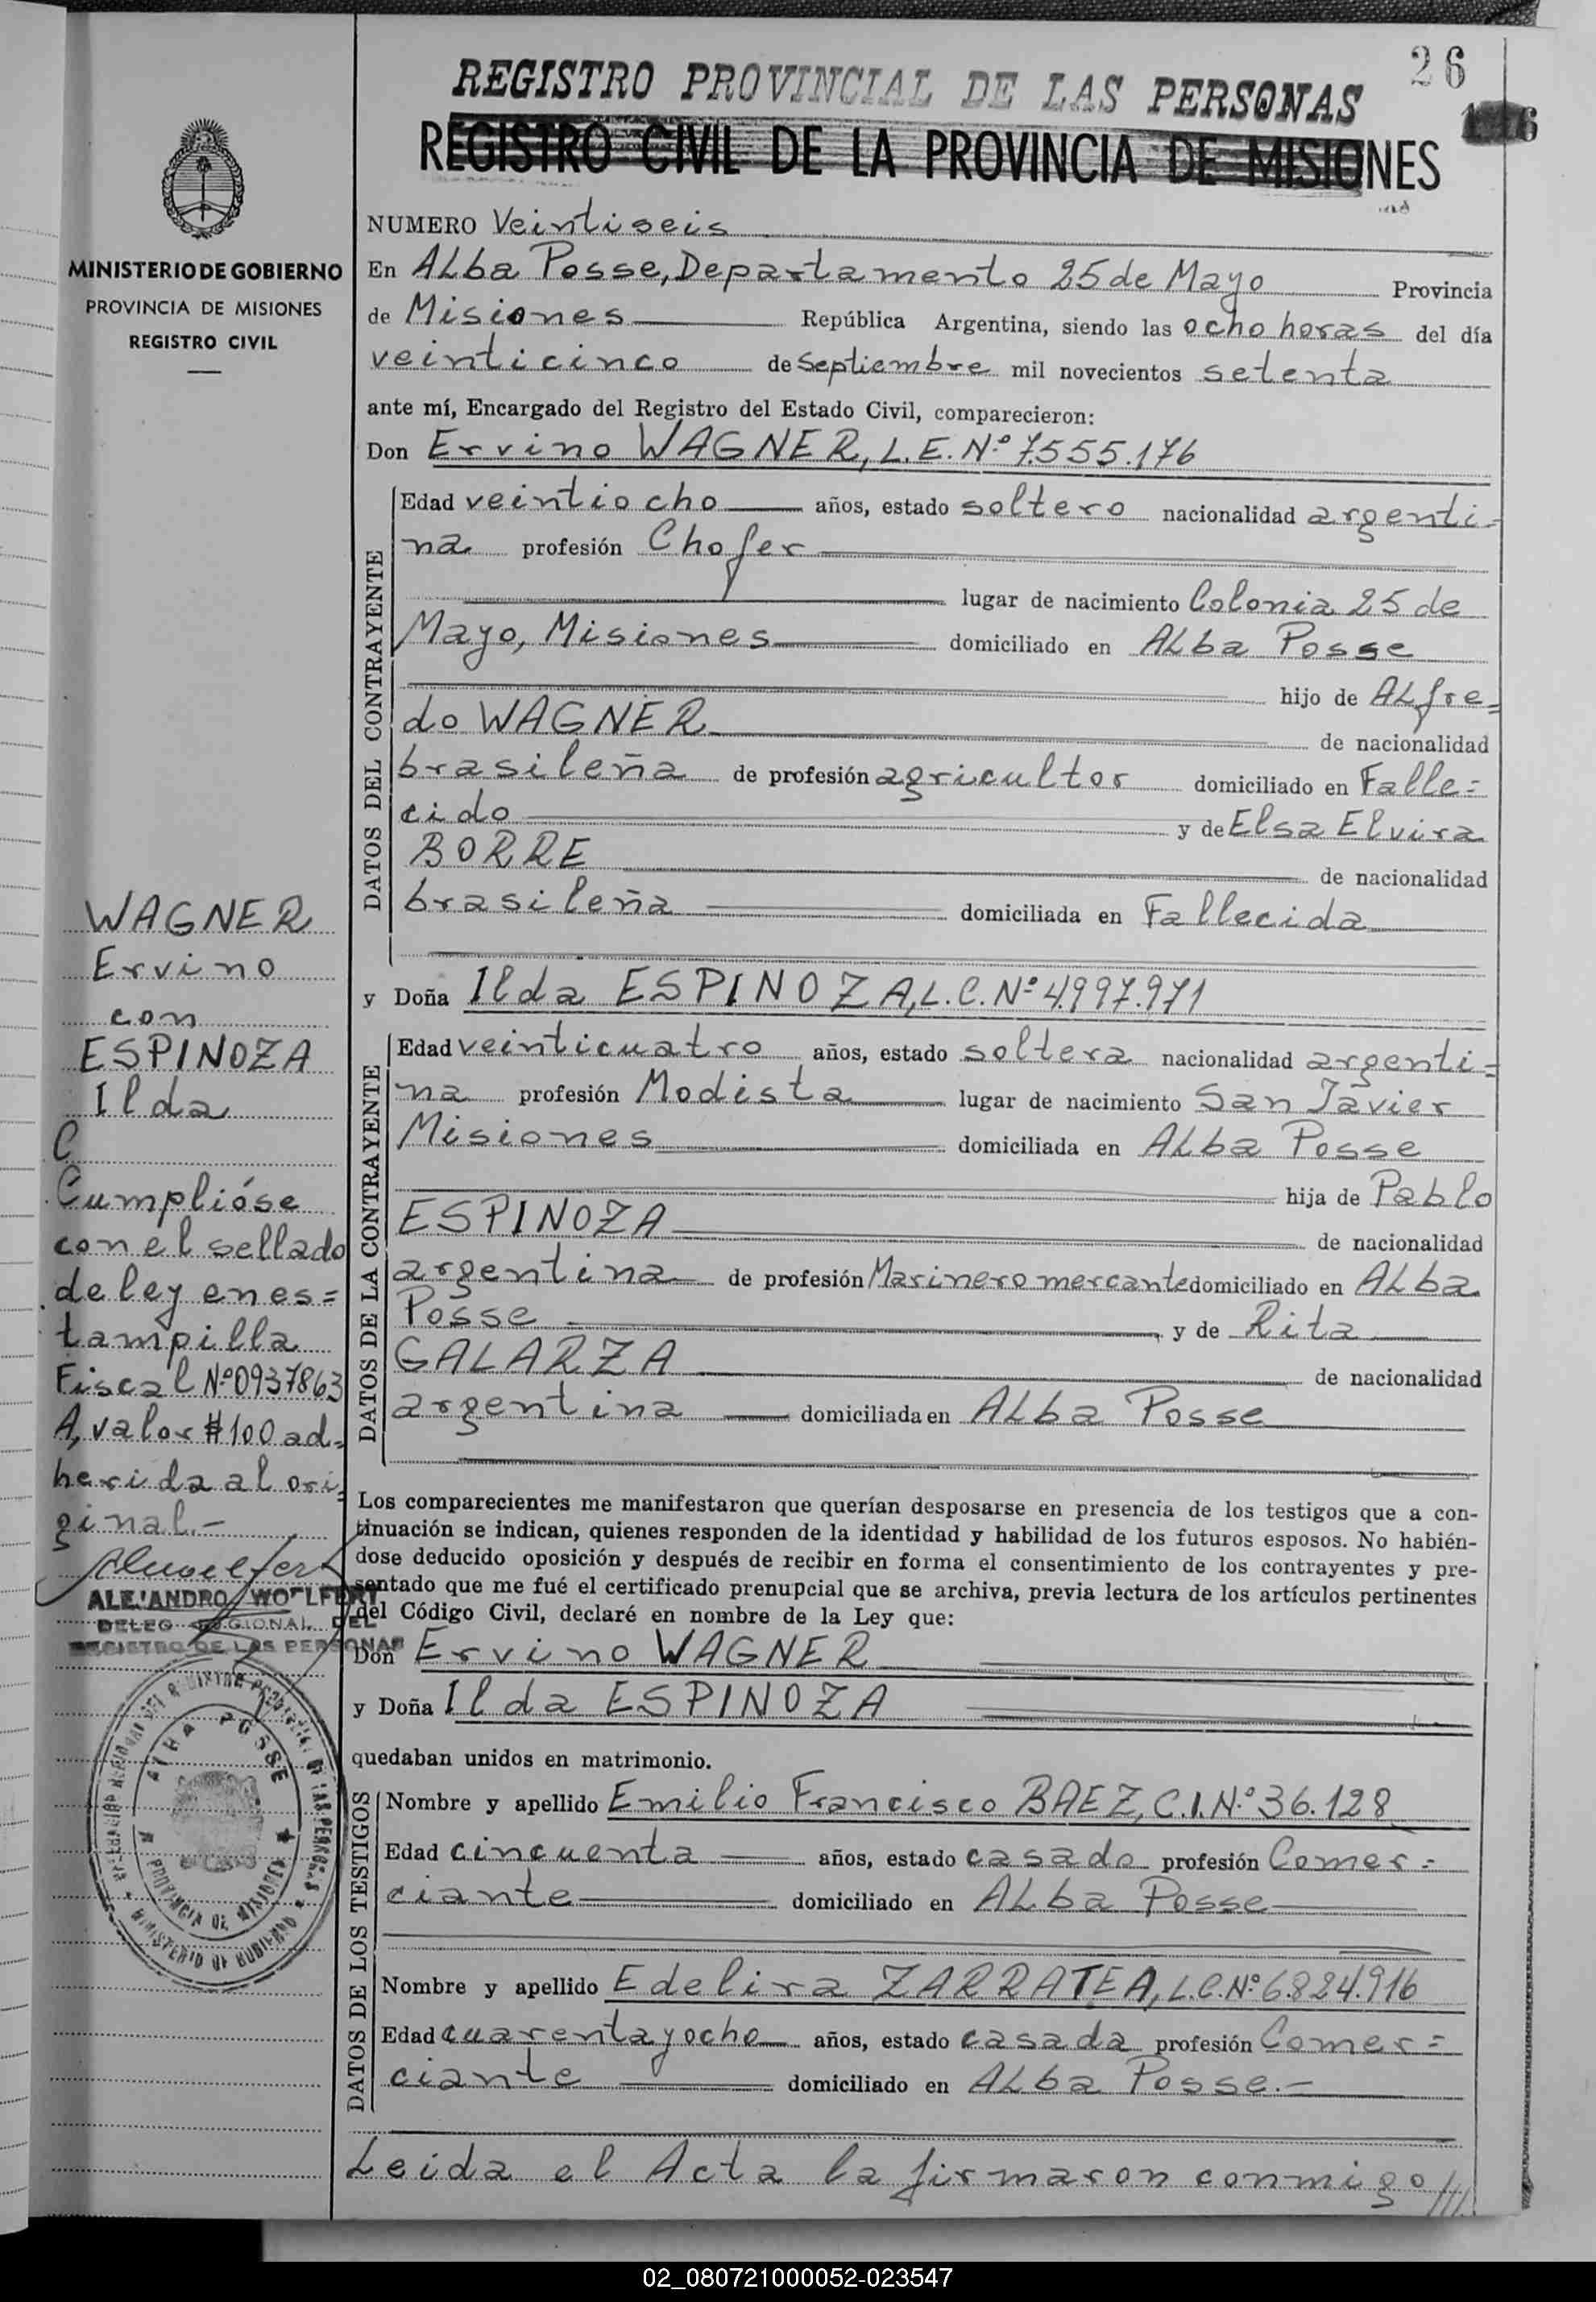 26
REGISTRO PROVINCIAL DE LAS PERSONAS
REGISTRO CIVIL DE LA PROVINCIA DE MISIONES
MINISTERIO DE GOBIERNO
PROVINCIA DE MISIONES
REGISTRO CIVIL
WAGNER
Ervino
con
ESPINOZA
Ilda
C
Cumplióse
con el sellado
de ley en es=
tampilla
Fiscal Nº 0937863
A, valor $100 ad=
herida al ori=
ginal.-
ALEJANDRO WOLFERT
DELEG REGIONAL DEL
REGISTRO DE LAS PERSONAS
ALBA POSSE
PROVINCIA DE MISIONES
MINISTERIO DE GOBIERNO
NUMERO Veintiseis
En ALba Posse, Departamento 25 de Mayo Provincia
de Misiones República Argentina, siendo las ocho horas del día
veinticinco de Septiembre mil novecientos setenta
ante mí, Encargado del Registro del Estado Civil, comparecieron:
Don Ervino WAGNER, L.E. Nº 7.555.176
DATOS DEL CONTRAYENTE
Edad veintiocho años, estado soltero nacionalidad argenti=
na profesión Chofer
lugar de nacimiento Colonia 25 de
Mayo, Misiones domiciliado en ALba Posse
hijo de ALfre=
do WAGNER de nacionalidad
brasileña de profesión agricultor domiciliado en Falle=
cido y de Elsa Elvira
BORRE de nacionalidad
brasileña domiciliada en Fallecida
y Doña Ilda ESPINOZA, L.C. Nº 4.997.971
DATOS DE LA CONTRAYENTE
Edad veinticuatro años, estado soltera nacionalidad argenti=
na profesión Modista lugar de nacimiento San Javier
Misiones domiciliada en ALba Posse
hija de Pablo
ESPINOZA de nacionalidad
argentina de profesión Marinero mercante domiciliado en ALba
Posse y de Rita
GALARZA de nacionalidad
argentina domiciliada en ALba Posse
Los comparecientes me manifestaron que querían desposarse en presencia de los testigos que a con-
tinuación se indican, quienes responden de la identidad y habilidad de los futuros esposos. No habién-
dose deducido oposición y después de recibir en forma el consentimiento de los contrayentes y pre-
sentado que me fué el certificado prenupcial que se archiva, previa lectura de los artículos pertinentes
del Código Civil, declaré en nombre de la Ley que:
Don Ervino WAGNER
y Doña Ilda ESPINOZA
quedaban unidos en matrimonio.
DATOS DE LOS TESTIGOS
Nombre y apellido Emilio Francisco BAEZ, C.I. Nº 36.128
Edad cincuenta años, estado casado profesión Comer=
ciante domiciliado en ALba Posse
Nombre y apellido Edelira ZARRATEA, L.C. Nº 6.824.916
Edad cuarenta y ocho años, estado casada profesión Comer=
ciante domiciliado en ALba Posse.-
Leida el Acta la firmaron conmigo///
02_080721000052-023547